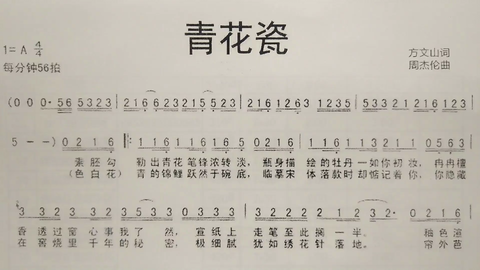 青花瓷
1=A 4/4
方文山词
每分钟56拍
周杰伦曲
(0 0 0· 56 5323 | 216 6 23 215 5 23 | 216 1263 1235 | 5332 12165
5 - -) 0 216 ‖: 116 116 1 216 | 116 116 1 321 | 113 2232 1 | 0563
素胚勾 勒出青花 笔锋浓转 淡, 瓶身描 绘的牡丹一如你初 妆, 冉冉檀
(色白花) 青的锦鲤 跃然于碗 底, 临摹宋 体落款时却惦记着 你, 你隐藏
香透过窗 心事我了 然, 宣纸上 走笔至此搁 一半。 釉色渲
在窑烧里 千年的秘 密, 极细腻 犹如绣花针 落地。 帘外芭